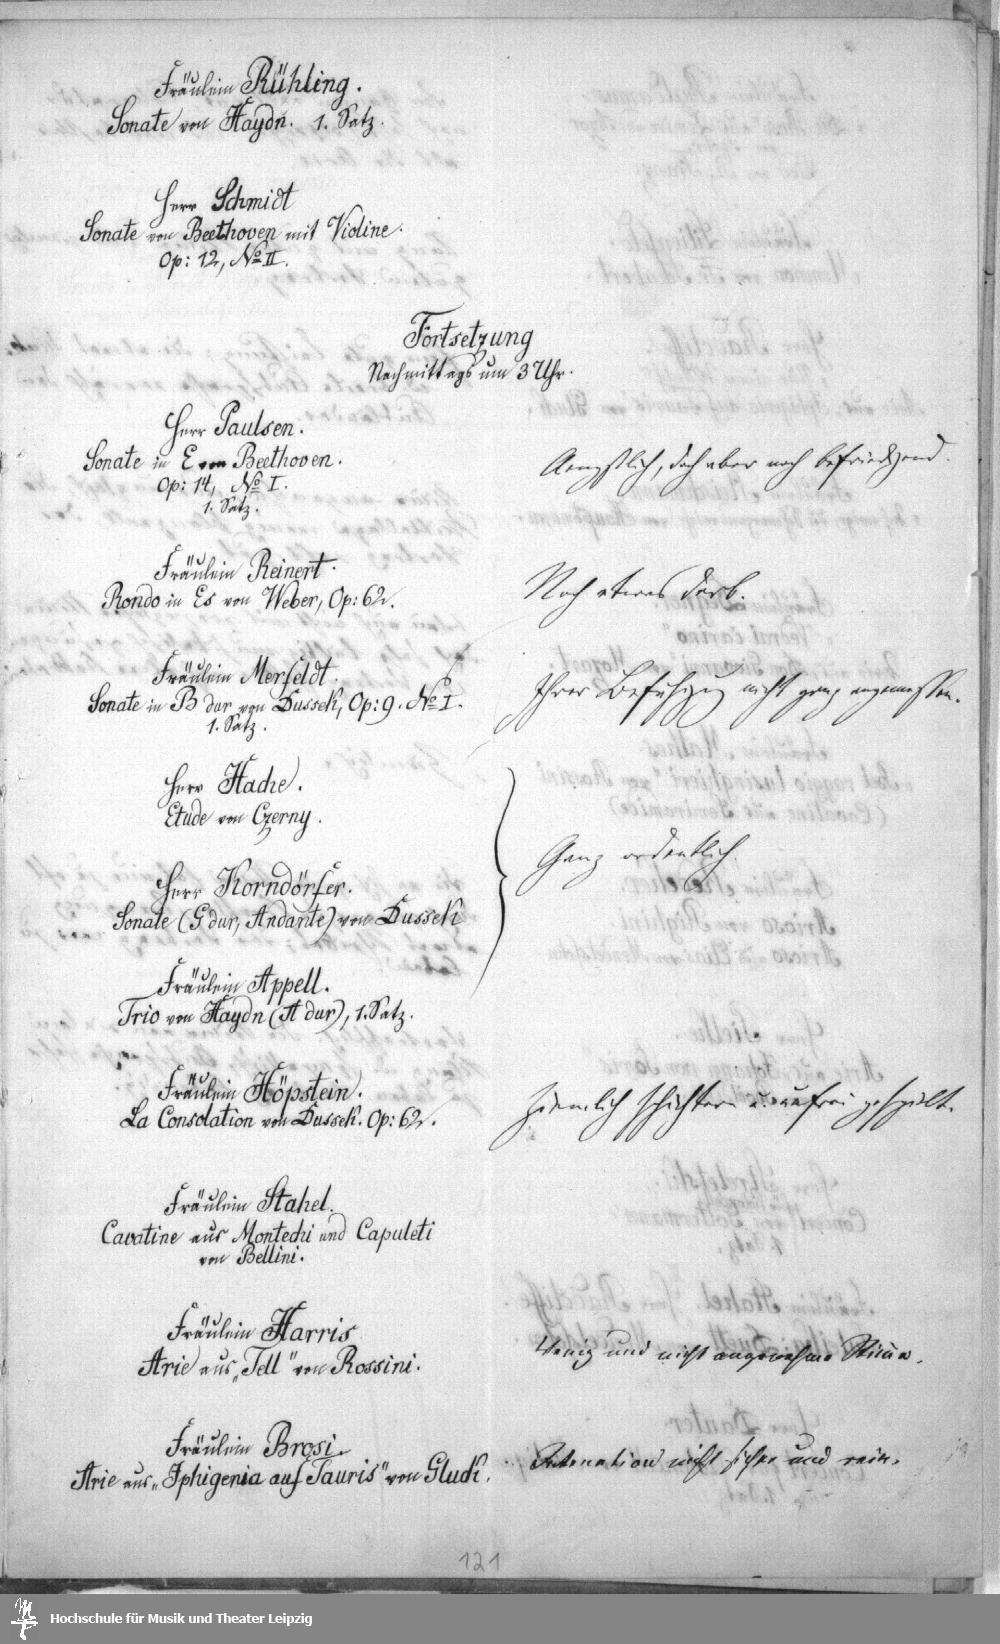 Fräulein Rühling.
Sonate von Haydn. 1. Satz.
Herr Schmidt
Sonate von Beethoven mit Violine.
Op: 12, No II.
Fortsetzung
Nachmittags um 3 Uhr.
Herr Paulsen.
Sonate in E von Beethoven.
Op: 14, No I.
1. Satz.
Aengstlich, doch aber noch befriedigend.
Fräulein Reinert.
Rondo in Es von Weber, Op: 62.
Noch etwas derb.
Fräulein Merfeldt.
Sonate in B dur von Dussek, Op: 9. No I.
1. Satz.
Ihrer Befähigung nicht ganz angemessen.
Herr Hache.
Etude von Czerny.
Herr Korndörfer.
Sonate (G dur, Andante) von Dussek
Ganz ordentlich.
Fräulein Appell.
Trio von Haydn (A dur), 1. Satz.
Fräulein Höpstein.
La Consolation von Dussek. Op: 62.
Ziemlich schüchtern u. unfrei gespielt.
Fräulein Stahel.
Cavatine aus Montechi und Capuleti
von Bellini.
Fräulein Harris
Arie aus „Tell" von Rossini.
Wenig und nicht angenehme Stimme.
Fräulein Brosi.
Arie aus „Iphigenia auf Tauris" von Gluck.
Intonation nicht sicher und rein.
121
Hochschule für Musik und Theater Leipzig